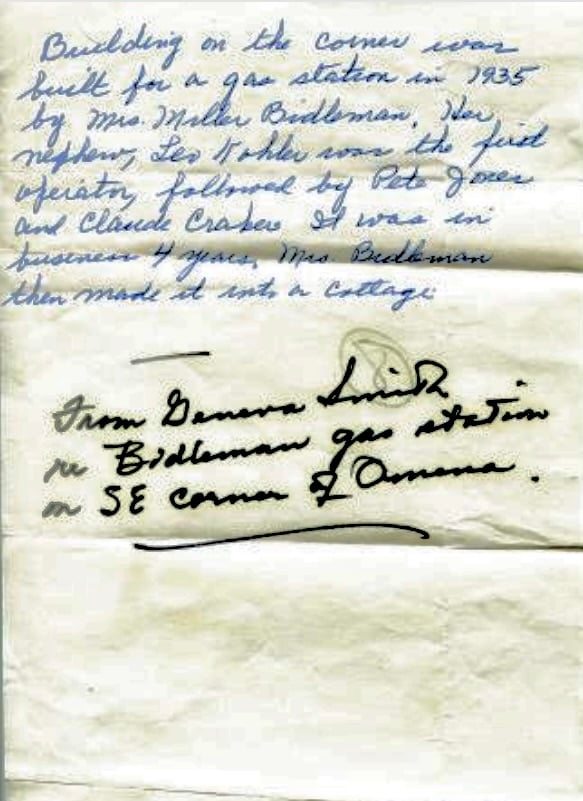 Building on the corner was
built for a gas station in 1935
by Mrs. Miller Bidleman. Her
nephew, Leo Kohler was the first
operator, followed by Pete Jones
and Claude Craker It was in
business 4 years. Mrs Bidleman
then made it into a cottage
From Geneva Smith
re Bidleman gas station
on SE corner of Omena.